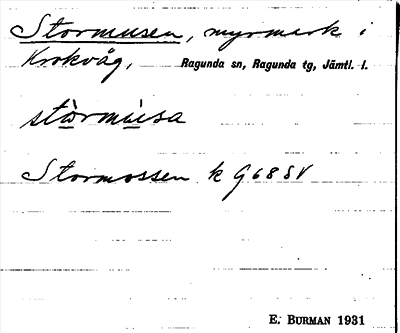 Stormusen, myrmark i
Krokvåg, Ragunda sn, Ragunda tg, Jämtl. l.
stòrmùsa
Stormossen k G 68 SV
E. BURMAN 1931